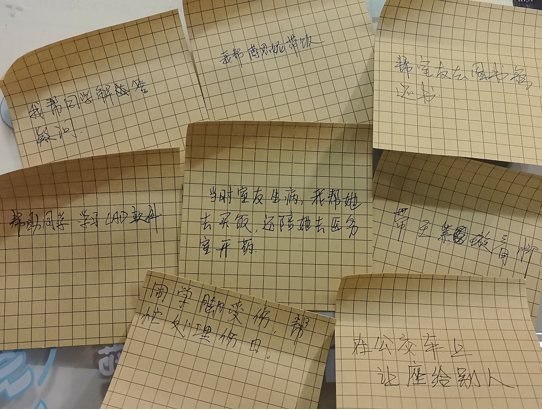 我帮同学解答
疑问
我帮舍友带饭
帮室友去图书馆
还书
帮助同学学习CAD软件
当时室友生病,我帮她
去买饭,还陪她去医务
室开药
带室
同学脚受伤,帮
忙处理伤口。
在公交车上
让座给别人